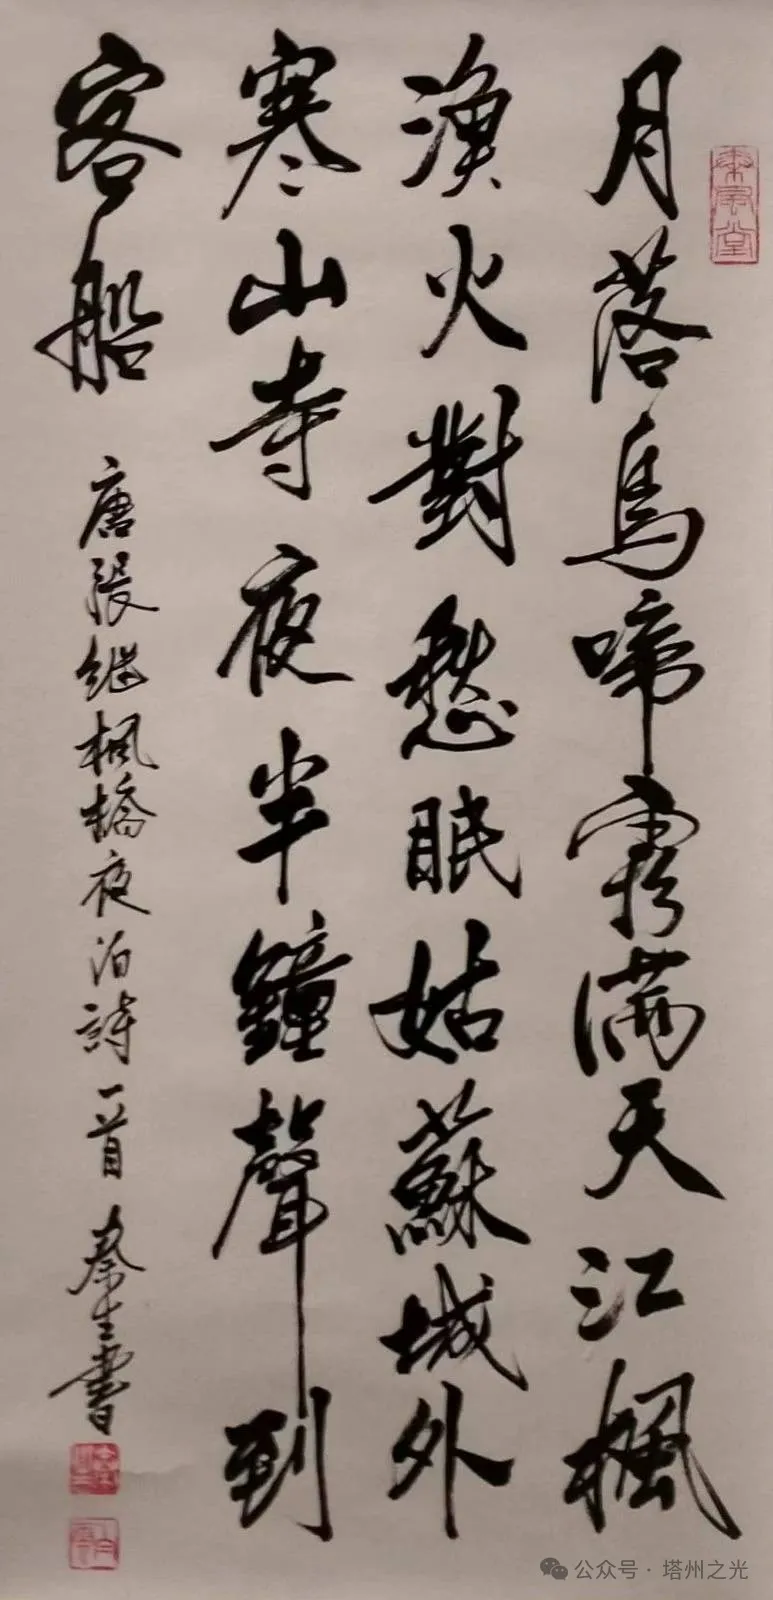 月落烏啼霜滿天江楓
漁火對愁眠姑蘇城外
寒山寺夜半鐘聲到
客船
唐張繼楓橋夜泊詩一首 生書
公众号 · 塔州之光